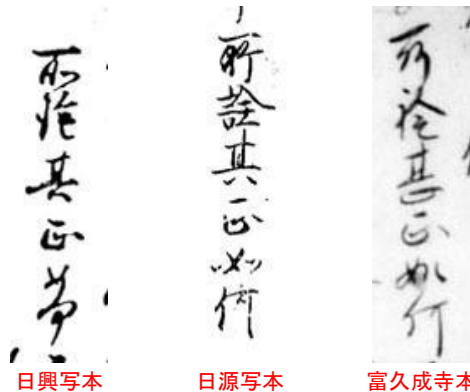 所詮其正
所詮其正如何
所詮其正如何
日興写本
日源写本
富久成寺本